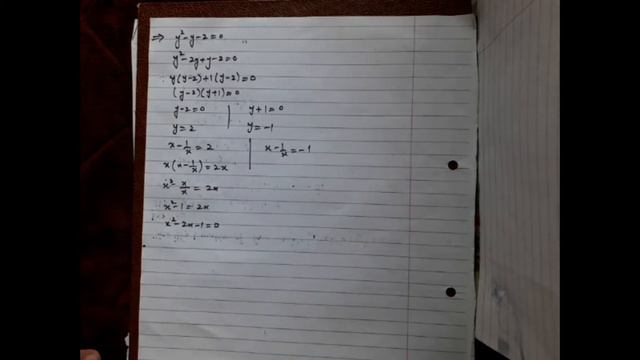 ⇒ y² - y - 2 = 0
y² - 2y + y - 2 = 0
y(y-2) + 1(y-2) = 0
(y-2)(y+1) = 0
y-2 = 0 | y+1 = 0
y = 2 | y = -1
x - 1/x = 2 | x - 1/x = -1
x(x - 1/x) = 2x
x² - x/x = 2x
x² - 1 = 2x
x² - 2x - 1 = 0